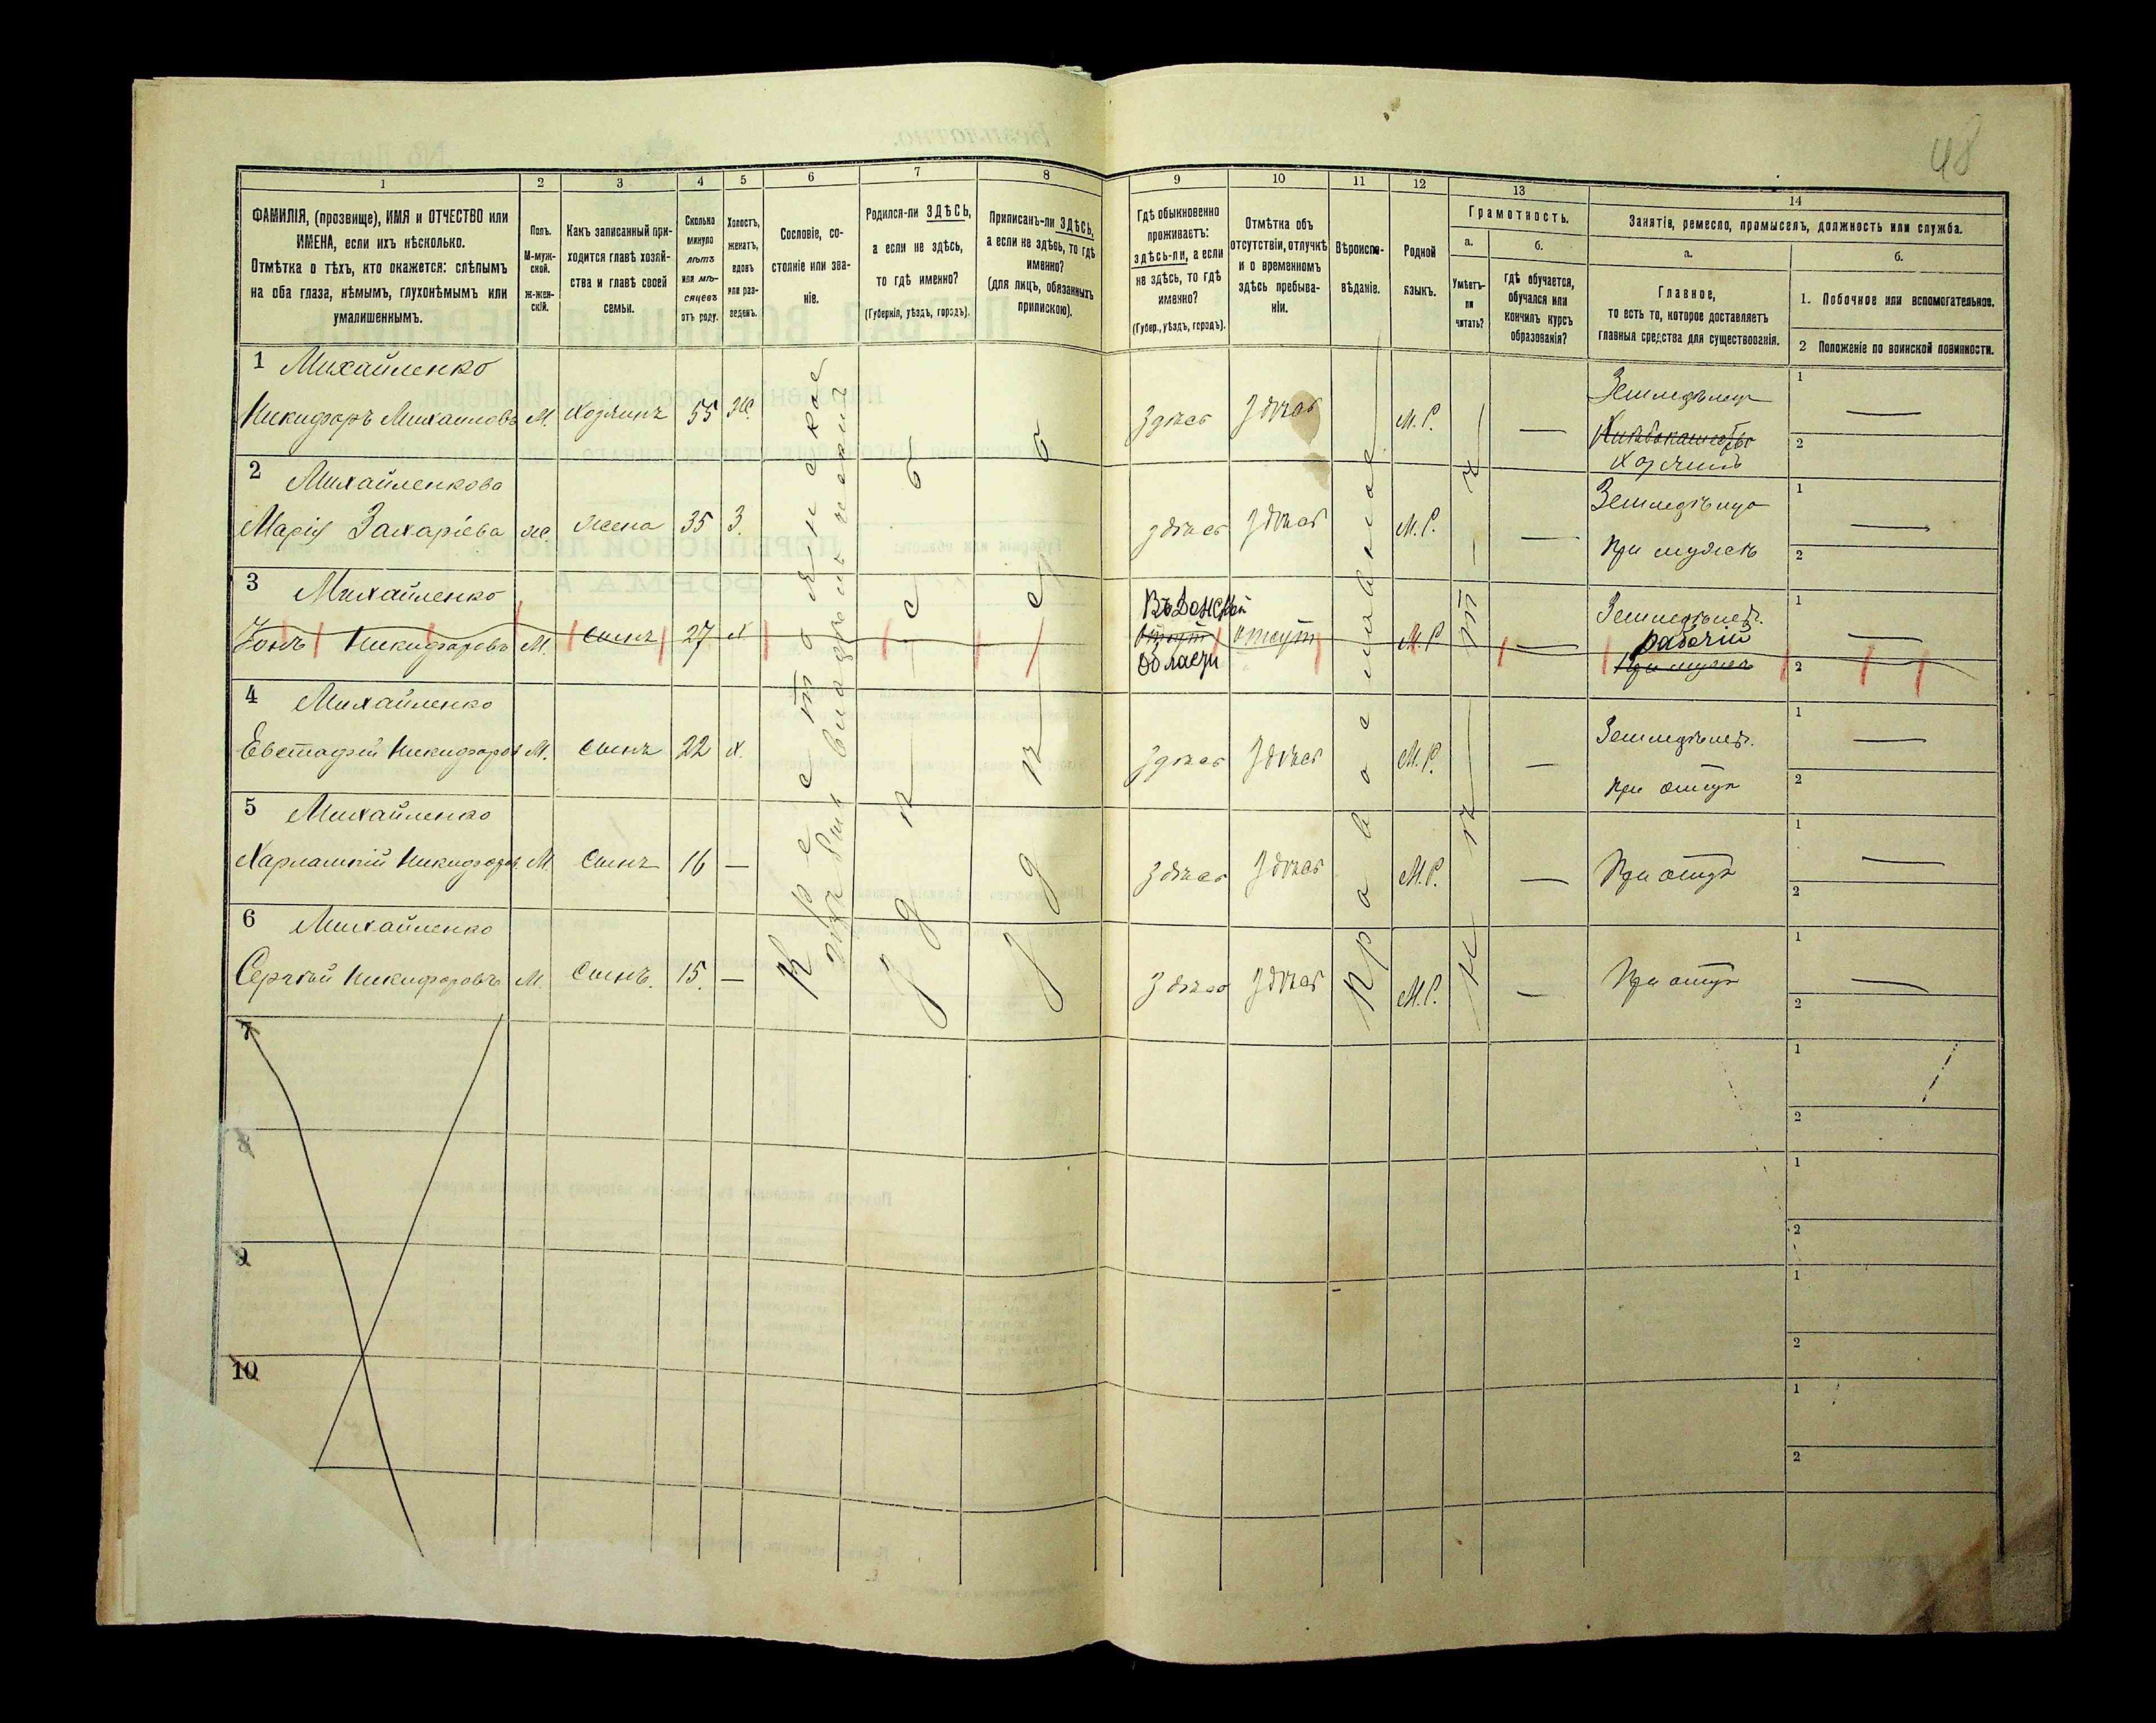 48
1 2 3 4 5 6 7 8 9 10 11 12 13 14
ФАМИЛІЯ, (прозвище), ИМЯ и ОТЧЕСТВО или
ИМЕНА, если ихъ нѣсколько.
Отмѣтка о тѣхъ, кто окажется: слѣпымъ
на оба глаза, нѣмымъ, глухонѣмымъ или
умалишеннымъ.
Полъ.
М-муж-
ской.
Ж-жен-
скій.
Какъ записанный при-
ходится главѣ хозяй-
ства и главѣ своей
семьи.
Сколько
минуло
лѣтъ
или мѣ-
сяцевъ
отъ роду.
Холостъ,
женатъ,
вдовъ
или раз-
веденъ.
Сословіе, со-
стояніе или зва-
ніе.
Родился-ли ЗДѢСЬ,
а если не здѣсь,
то гдѣ именно?
(Губернія, уѣздъ, городъ).
Приписанъ-ли ЗДѢСЬ,
а если не здѣсь, то гдѣ
именно?
(для лицъ, обязанныхъ
припискою).
Гдѣ обыкновенно
проживаетъ:
здѣсь-ли, а если
не здѣсь, то гдѣ
именно?
(Губер., уѣздъ, городъ).
Отмѣтка объ
отсутствіи, отлучкѣ
и о временномъ
здѣсь пребыва-
ніи.
Вѣроиспо-
вѣданіе.
Родной
языкъ.
Грамотность.
а.
Умѣетъ-
ли
читать?
б.
Гдѣ обучается,
обучался или
кончилъ курсъ
образованія?
Занятія, ремесло, промыселъ, должность или служба.
а.
Главное,
то есть то, которое доставляетъ
главныя средства для существованія.
б.
1. Побочное или вспомогательное.
2 Положеніе по воинской повинности.
1 Михайленко
Никифоръ Михаиловъ М. хозяинъ 55 Ж. здѣсь здѣсь М.Р. — Земледѣлецъ
хозяинъ
1 —
2
2 Михайленкова
Марія Захаріева ж. жена 35 З. здѣсь здѣсь М.Р. — Земледѣлецъ
при мужѣ
1 —
2
3 Михайленко
Іонъ Никифоровъ М. сынъ 27 х Въ Донской
отсут отсут М.Р —
области
Земледѣлецъ.
рабочій
при мужѣ
1 —
2
4 Михайленко
Евстафій Никифоров М. сынъ 22 х. здѣсь здѣсь М.Р. — Земледѣлецъ.
при отцѣ
1 —
2
5 Михайленко
Харлампій Никифоров М. сынъ 16 — здѣсь здѣсь М.Р. — При отцѣ
1 —
2
6 Михайленко
Сергѣй Никифоровъ М. сынъ. 15. — здѣсь здѣсь М.Р. — При отцѣ
1 —
2
Крестьянское
здѣсь
здѣсь
Православное
нѣтъ — нѣтъ
7
1
2
8
1
2
9
1
2
10
1
2